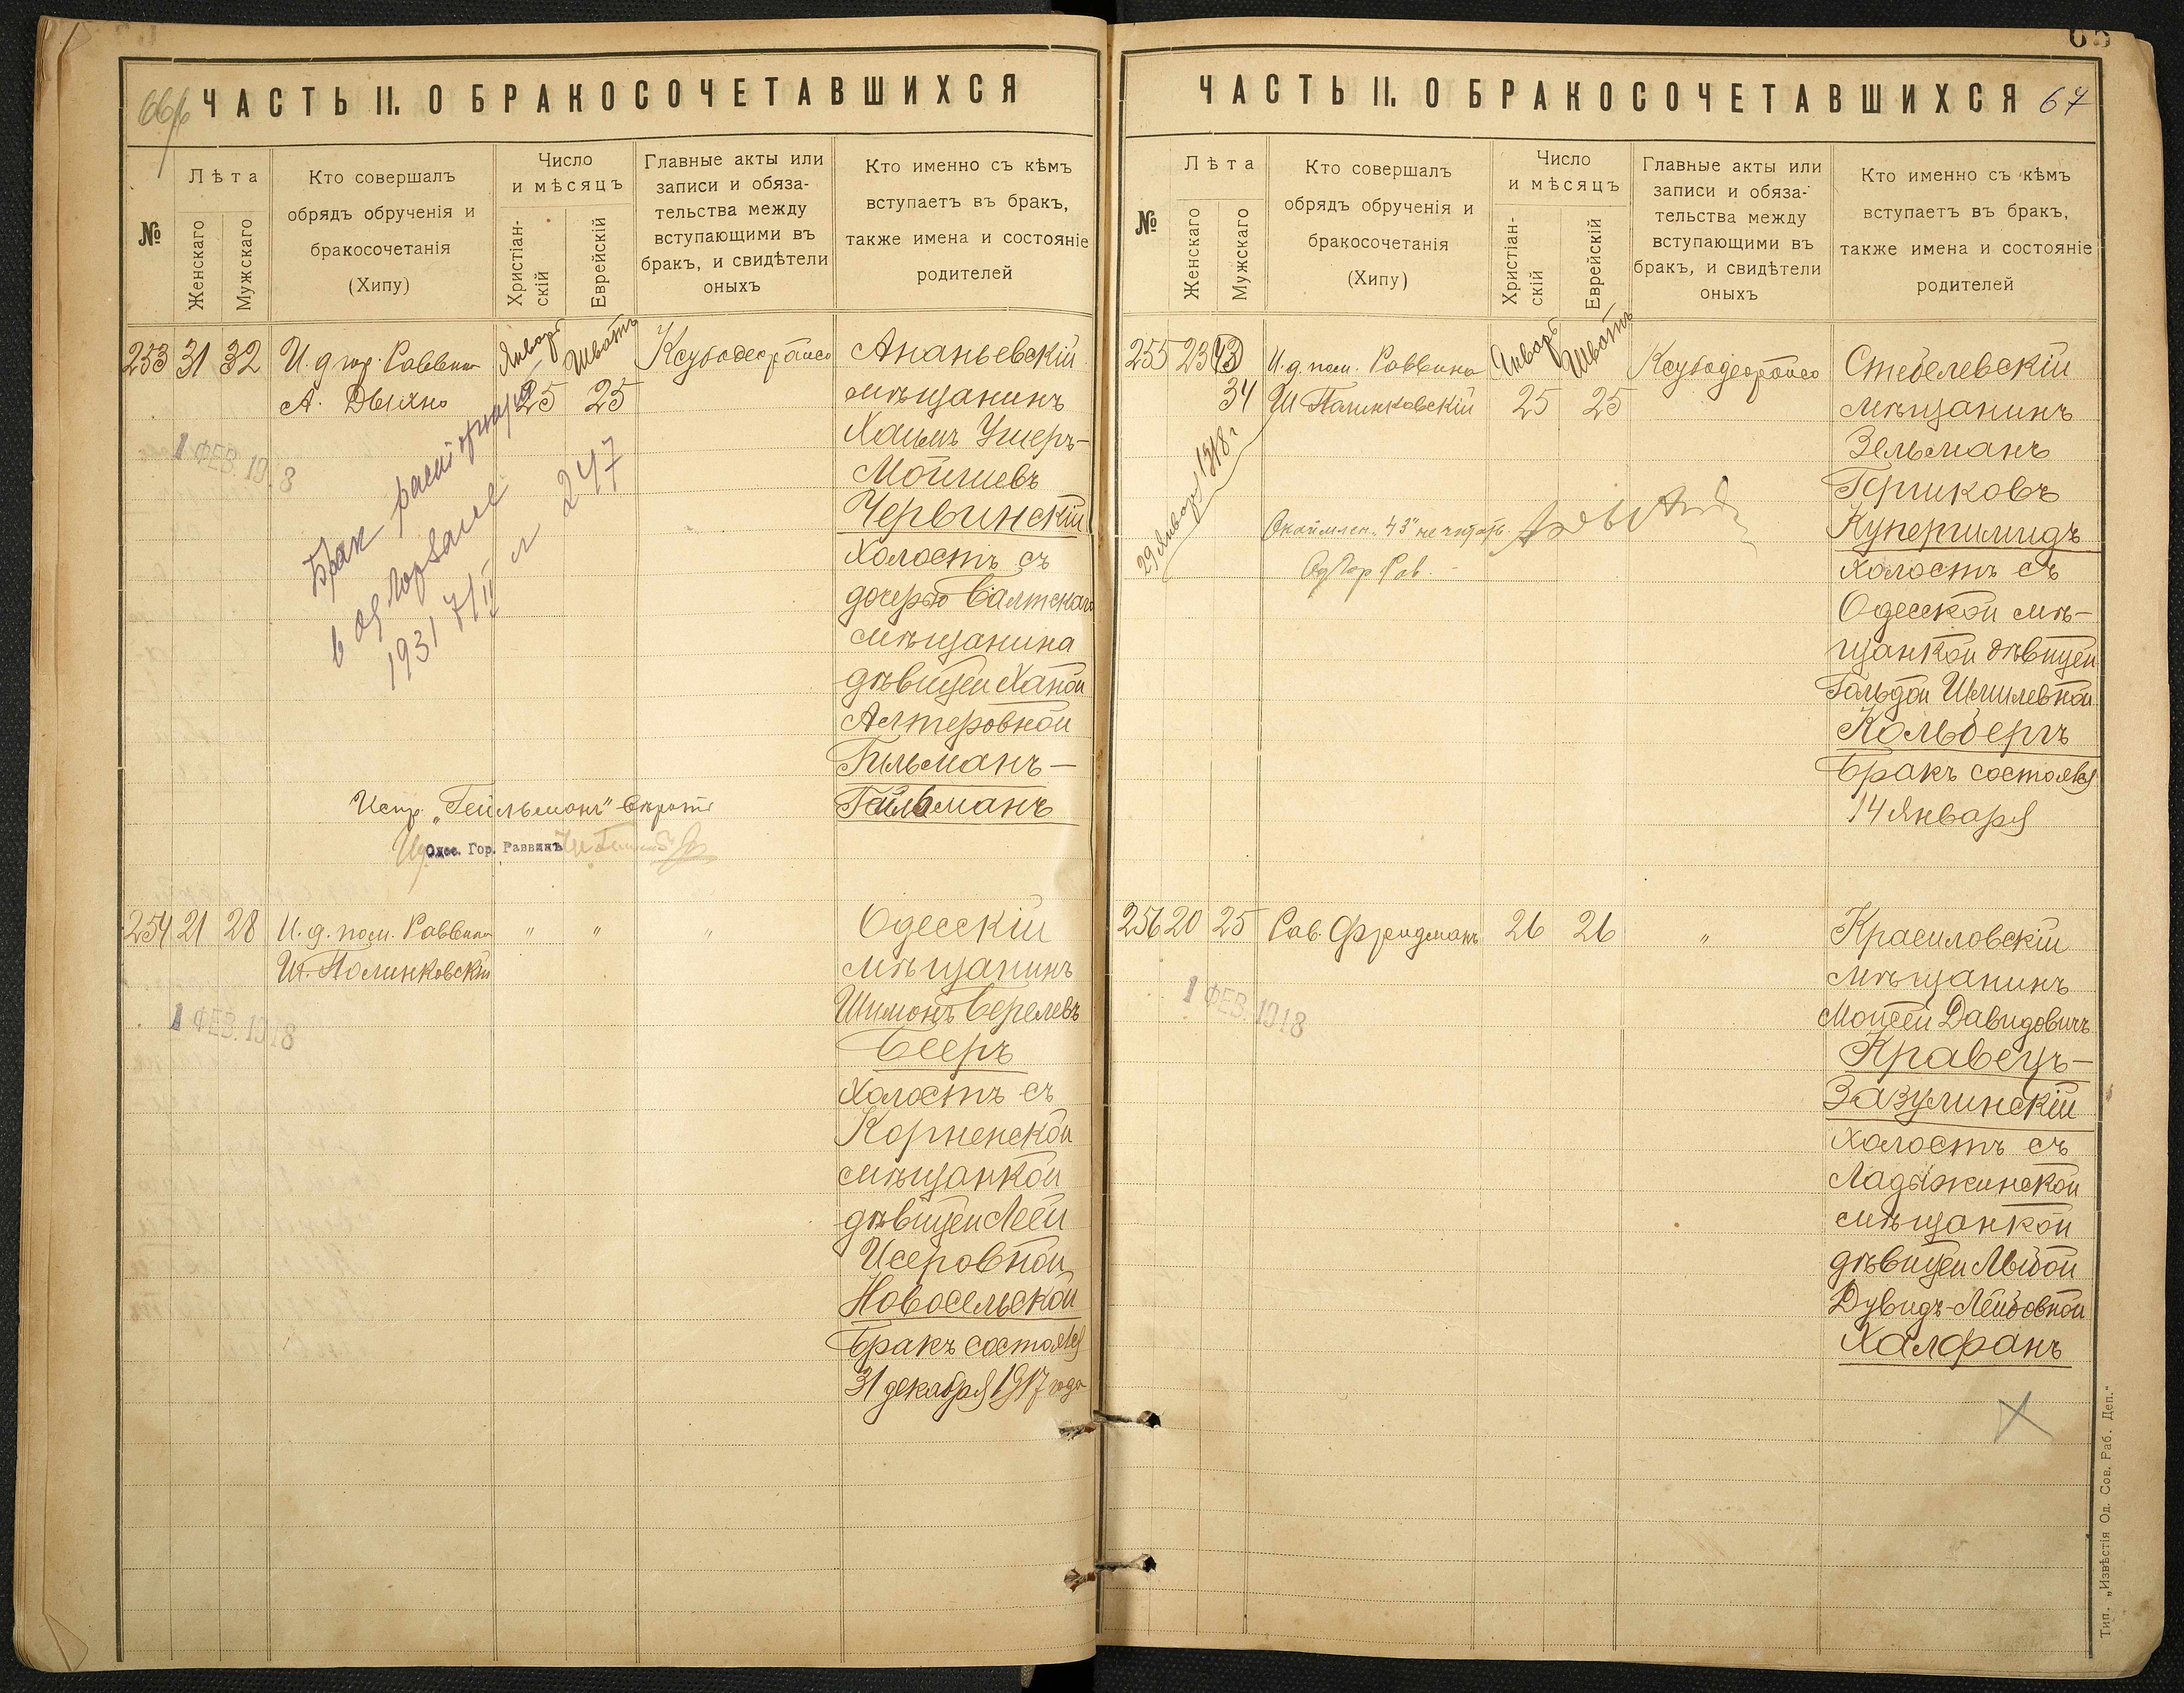 66
ЧАСТЬ II. О БРАКОСОЧЕТАВШИХСЯ
№
Лѣта
Женскаго
Мужскаго
Кто совершалъ
обрядъ обрученія и
бракосочетанія
(Хипу)
Число
и мѣсяцъ
Христіан-
скій
Еврейскій
Главные акты или
записи и обяза-
тельства между
вступающими въ
бракъ, и свидѣтели
оныхъ
Кто именно съ кѣмъ
вступаетъ въ бракъ,
также имена и состояніе
родителей
253 31 32 И. д. гор. Раввина Январь Шватъ
А. Дыхно 25 25
1 ФЕВ. 1918
Брак расторгнут
в од
1931 7/II 247
Ананьевскій
мѣщанинъ
Хаимъ Ушеръ-
Мошковъ
Червинскій
холостъ съ
дочерью Балтскаго
мѣщанина
дѣвицей Ханой
Алтеровной
Гильманъ-
Гейльманъ
Испр. „Гейльманъ" вѣрить
Одес. Гор. Раввинъ
254 21 28 И. д. пом. Раввина " " "
Ш. Полинковскій
1 ФЕВ. 1918
Одесскій
мѣщанинъ
Шимонъ Берелевъ
Бееръ
холостъ съ
Корненской
мѣщанкой
дѣвицей Леей
Исеровной
Новосельской
Бракъ состоялся
31 декабря 1917 года
65
ЧАСТЬ II. О БРАКОСОЧЕТАВШИХСЯ
67
№
Лѣта
Женскаго
Мужскаго
Кто совершалъ
обрядъ обрученія и
бракосочетанія
(Хипу)
Число
и мѣсяцъ
Христіан-
скій
Еврейскій
Главные акты или
записи и обяза-
тельства между
вступающими въ
бракъ, и свидѣтели
оныхъ
Кто именно съ кѣмъ
вступаетъ въ бракъ,
также имена и состояніе
родителей
255 23 43 И. д. пом. Раввина Январь Шватъ
34 Ш. Полинковскій 25 25
29 Января 1918 г.
„43" не читать
Од Гор Рав.
Стебелевскій
мѣщанинъ
Зельманъ
Гершковъ
Купершмидъ
холостъ съ
Одесской мѣ-
щанкой дѣвицей
Гольдой Шмилевной
Кольбергъ
Бракъ состоялся
14 Января
256 20 25 Рав. Фридманъ 26 26 "
1 ФЕВ. 1918
Красиловскій
мѣщанинъ
Мойсей Давидовичъ
Кравецъ-
Зазулинскій
холостъ съ
Ладыжинской
мѣщанкой
дѣвицей Любой
Дувидъ-Лейбовной
Халфанъ
Тип. „Извѣстія Од. Сов. Раб. Деп."